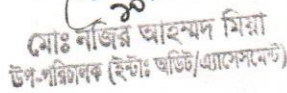 মোঃ নজির আহম্মদ মিয়া
উপ-পরিচালক (ইন্টাঃ অডিট/এ্যাসেসমেন্ট)